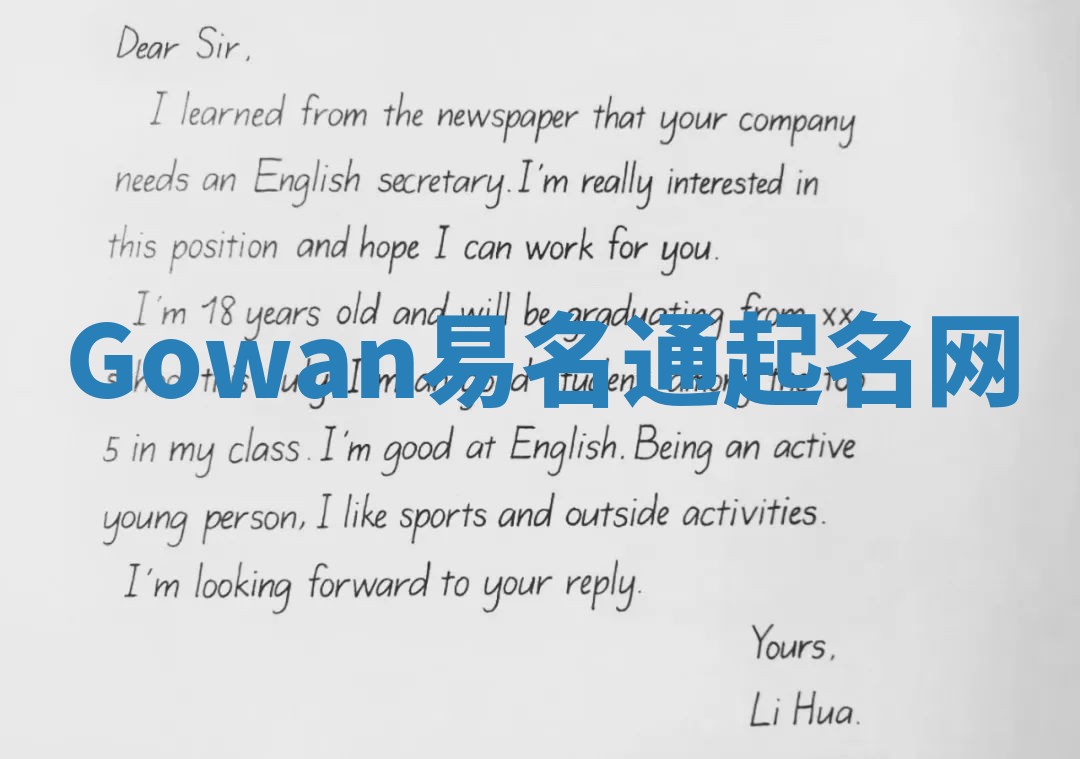 Dear Sir,
I learned from the newspaper that your company
needs an English secretary. I'm really interested in
this position and hope I can work for you.
I'm 18 years old and will be graduating from xx
Gowan易名通起名网
5 in my class. I'm good at English. Being an active
young person, I like sports and outside activities.
I'm looking forward to your reply.
Yours,
Li Hua.